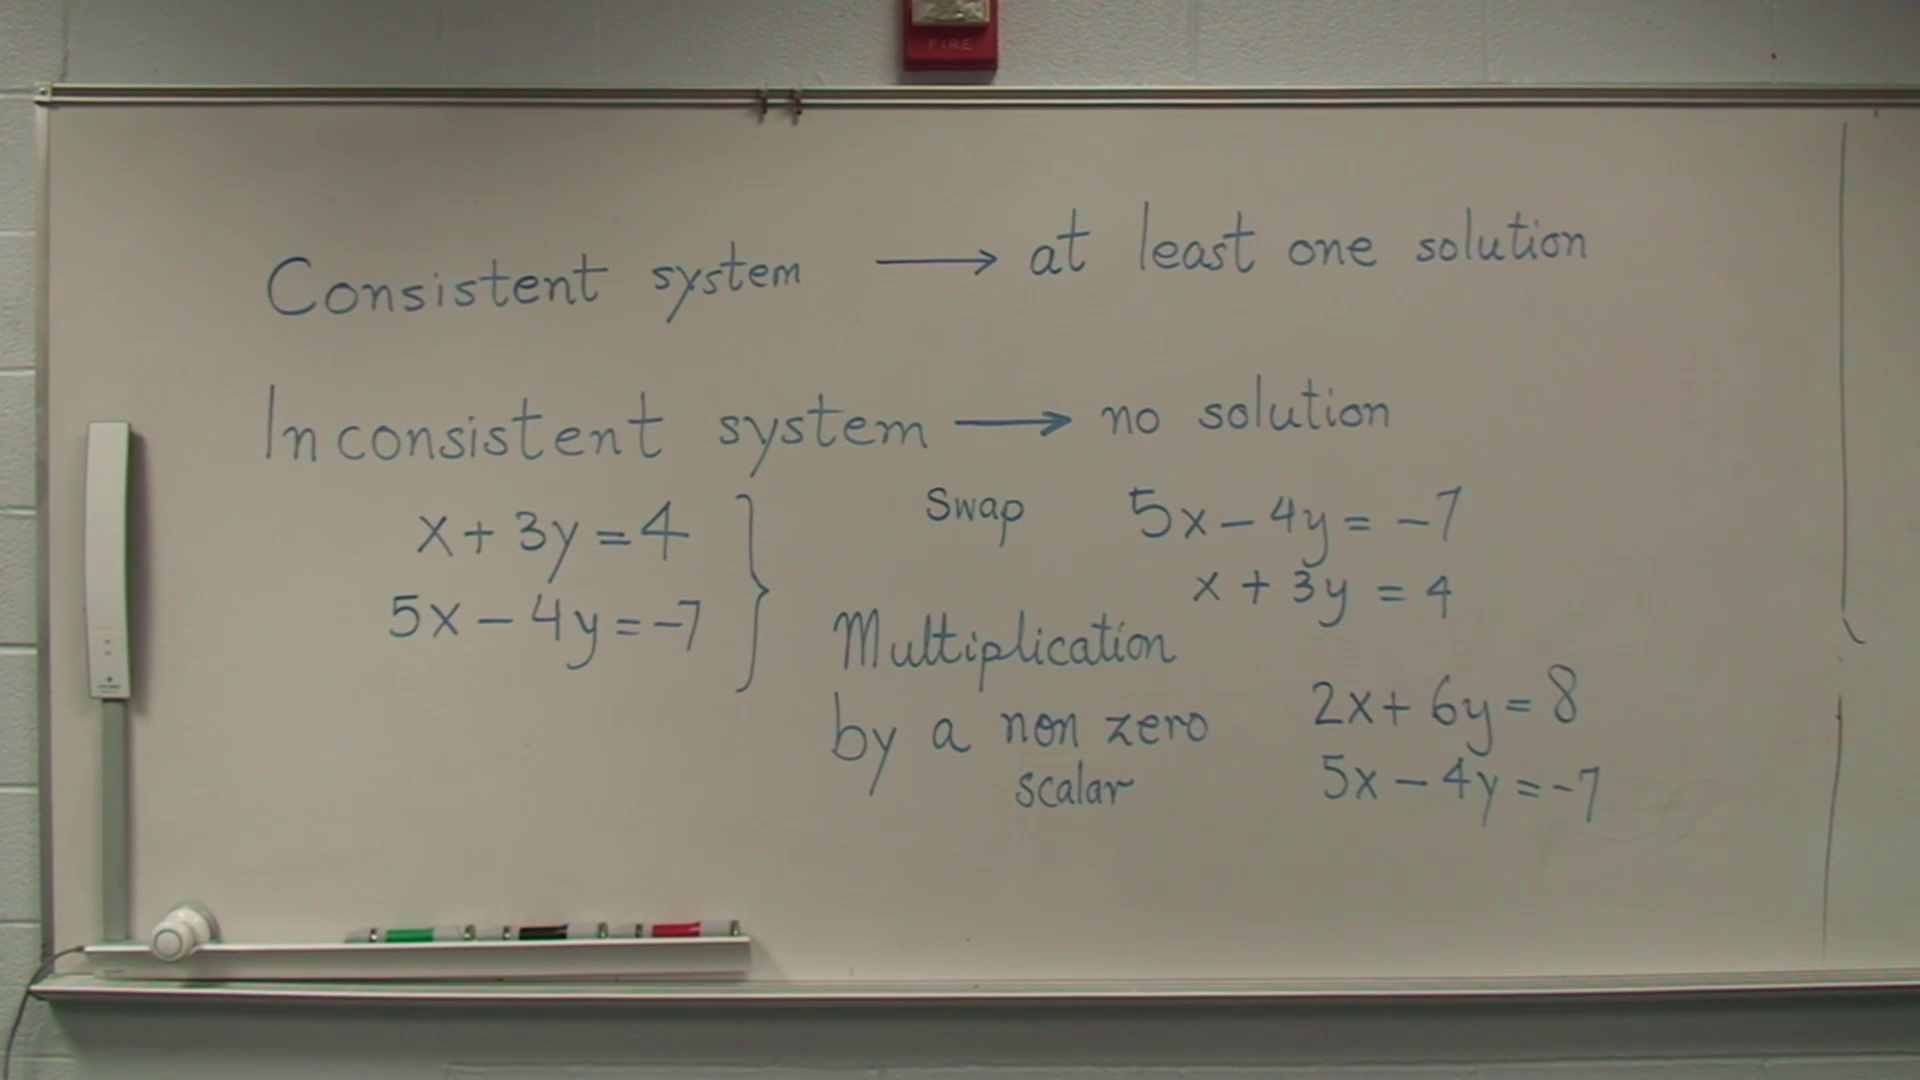 FIRE
Consistent system → at least one solution
Inconsistent system → no solution
x + 3y = 4
5x - 4y = -7
Swap
5x - 4y = -7
x + 3y = 4
Multiplication
by a non zero
scalar
2x + 6y = 8
5x - 4y = -7